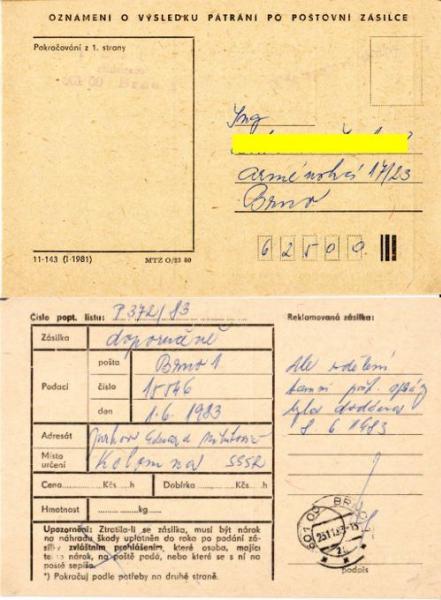 OZNÁMENÍ O VÝSLEDKU PÁTRÁNÍ PO POŠTOVNÍ ZÁSILCE
Pokračování z 1. strany
Ing
17/23
Brno
62500
11-143 (I-1981) MTZ O/23 80
Číslo popt. listu: P372/83
Zásilka doporučeně
Podací
pošta Brno 1
číslo
den 1.6.1983
Adresát
Místo určení Kolomna SSSR
Cena Kčs h Dobírka Kčs h
Hmotnost kg
Upozornění: Ztratila-li se zásilka, musí být nárok
na náhradu škody uplatněn do roka po podání zá-
silky zvláštním prohlášením, které osoba, mající
tento nárok, na poště podá, nebo které se s ní na
poště sepíše.
*) Pokračuj podle potřeby na druhé straně.
Reklamovaná zásilka:
dle sdělení
byla dodána
8.6.1983
podpis